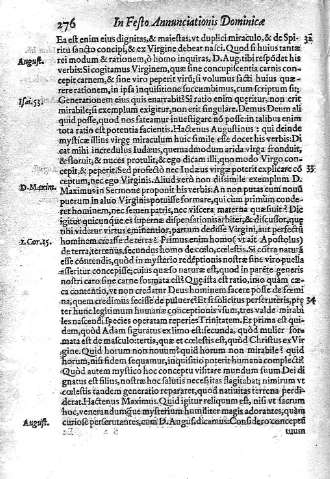 276 In Festo Annunciationis Dominicæ
Ea est enim eius dignitas, & maiestas, vt duplici miraculo, & de Spi- 32
ritu sancto concipi, & ex Virgine debeat nasci. Quod si huius tantæ
August. rei modum & rationem, ò homo inquiras, D. Aug. tibi respódet his
verbis: Si cogitamus Virginem, quæ sine concupiscentia carnis con-
cepit carnem, & sine viro peperit virũ; si volumus facti huius quæ-
rere rationem, in ipsa inquisitione succumbimus, cum scriptum sit;
Isai. 53. Generationem eius quis enarrabit? Si ratio enim quæritur, non erit
mirabile; si exemplum exigitur, non erit singulare. Demus Deum ali
quid posse, quod nos fateamur inuestigare nõ posse: in talibus enim
tota ratio est potentia facientis. Hactenus Augustinus: qui deinde
mysticæ illius virgæ miraculum huic simile esse docet his verbis: Di
cat mihi incredulus Iudæus, quemadmodum arida virga fronduit,
& floruit, & nuces protulit; & ego dicam illi, quo modo Virgo con-
cepit, & peperit. Sed profectò nec Iudæus virgã poterit explicare cõ 33
ceptum, nec ego Virginis. Aliud verò non dissimile exemplum D.
D. Maxim. Maximus in Sermone proponit his verbis: An non putas eum nouũ
puerum in aluo Virginis potuisse formare, qui cium primum conde-
ret hominem, nec semen patris, nec viscera materna quæsiuit?
igitur quicunque es
nibi videatur virtus eminentior, partum dedisse Virgini, aut perfectũ
1. Cor. 15. hominem creasse de terra? Primus enim homo (vt ait Apostolus)
de terra terrenus, secundus homo de cœlo, cœlestis. Si cõtra naturã
esse cõtendis, quòd in mysterio redéptionis nostræ sine viro puella
asseritur concepisse; cuius quæso naturæ est, quod in parête generis
nostri caro sine carne formata est? Quæ ista est ratio, imo quàm cæ-
ca contentio, vt non credatur Deus hominem facere posse de fœmi
na, quem credimus fecisse de puluere? Et si solicitus perscruteris, præ 34
ter hunc legitimum humanæ conceptionis vsum, tres valde mirabi
les nascendi species operatam reperies Trinitatem. Et prima est qui-
dem, quòd Adam figuratus ex limo est: secunda, quòd mulier for-
mata est de masculo: tertia, quæ et cœlestis est, quòd Christus ex Vir
gine. Quid horum non nouum? quid horum non mirabile? quid
horum, nisi fidem sequamur, inquisitio poterit humana complecti?
Quòd autem mystico hoc conceptu visitare mundum suum Dei di
gnatus est filius, nostræ hoc salutis necessitas flagitabat; nimirum vt
cœlestis tandem generatio repararet, quod natiuitas terrena perdi-
derat. Hactenus Maximus. Quid igitur reliquum est, nisi vt sacrum
hoc, venerandumque mysterium humiliter magis adorantes, quàm
August. curiosè perscrutantes, cum D. August. dicamus: Considero conceptũ
tuum